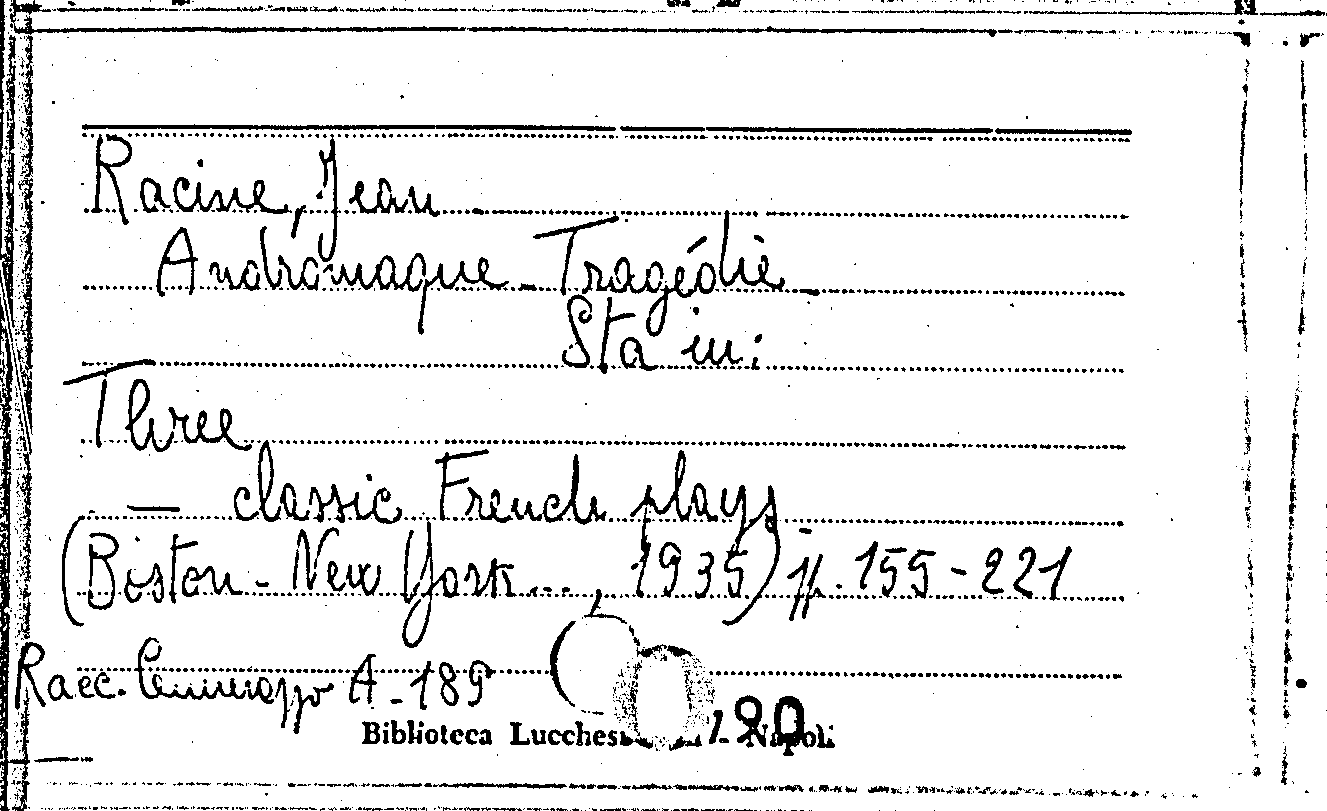 Racine, Jean
Andromaque - Tragédie -
Sta in:
Three
— classic French plays
(Boston - New York ..., 1935) pp. 155-221
Racc. A-189
Biblioteca - Napoli